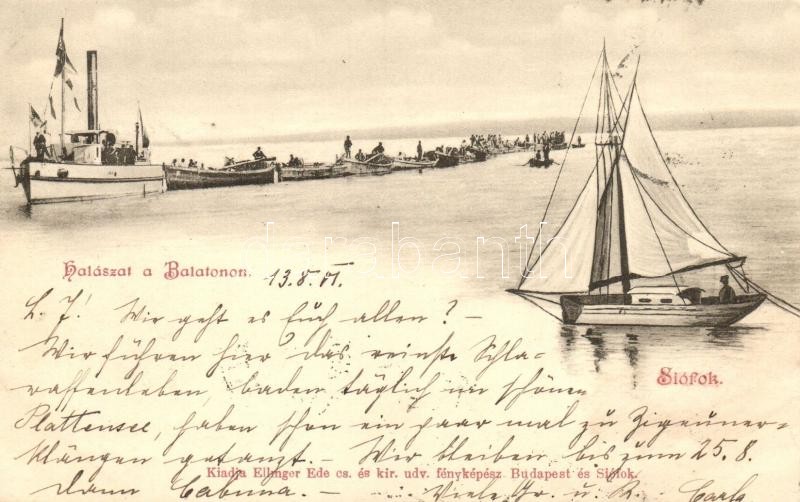 Halászat a Balatonon. 13.8.01.
L. J! Wir geht es Euch allen? –
Wir führen hier das reinste Schla-
raffenleben, baden täglich im schönen
Plattensee, haben schon ein paar mal zu Zigeuner-
klängen getanzt. – Wir bleiben bis zum 25.8.
Siófok.
Kiadja Ellinger Ede cs. és kir. udv. fényképész Budapest és Siófok.
dann – Viele Gr. u. K.
darabanth